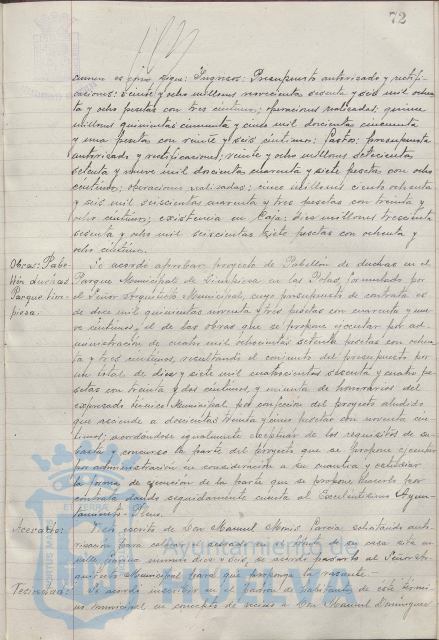 72
sumen es como sigue: Ingresos: Presupuesto autorizado y rectifi-
caciones: veinte y ocho millones novecienta sesenta y seis mil ochen
ta y ocho pesetas con tres céntimos; operaciones realizadas: quince
millones quinientas cincuenta y cinco mil doscientas cincuenta
y una pesetas con veinte y seis céntimos: Gastos: presupuesto
autorizado y rectificaciones; veinte y ocho millones setecientas
setenta y nueve mil doscientas cuarenta y siete pesetas con ocho
céntimos; operaciones realizadas: cinco millones ciento ochenta
y seis mil seiscientas cuarenta y tres pesetas con treinta y
ocho céntimos; existencia en Caja: diez millones trescientas
sesenta y ocho mil seiscientas siete pesetas con ochenta y
ocho céntimos.
Obras: Pabe-
llón duchas
Parque lim-
pieza.
Se acordó aprobar proyecto de Pabellón de duchas en el
Parque Municipal de Limpieza en las Colas, formulado por
el Señor Arquitecto Municipal, cuyo presupuesto de contrata es
de doce mil quinientas noventa y tres pesetas con cuarenta y nue
ve céntimos, el de las obras que se propone ejecutar por ad-
ministración de cuatro mil ochocientas setenta pesetas con ochen
ta y tres céntimos, resultando el conjunto del presupuesto por
un total de diez y siete mil cuatrocientas sesenta y cuatro pe
setas con treinta y dos céntimos, y minuta de honorarios del
expresado técnico Municipal por confección del proyecto aludido
que asciende a doscientas treinta y cinco pesetas con noventa cén
timos; acordándose igualmente exceptuar de los requisitos de su-
basta y concurso la parte del proyecto que se propone ejecutar
por administración en consideración a su cuantía y estudiar
la forma de ejecución de la parte que se propone hacerlo por
contrata dando seguidamente cuenta al Excelentísimo Ayun-
tamiento Pleno.
Acerado:
Visto escrito de Don Manuel García solicitando auto-
rización para colocar acerado en el frente de su casa sita en
calle número diez y seis, se acordó pasarlo al Señor Ar-
quitecto Municipal para que proponga la rasante.-
Vecindad:
Se acordó inscribir en el padrón de habitantes de éste térmi-
no municipal en concepto de vecino a Don Manuel Domínguez
Ayuntamiento de
HUELVA